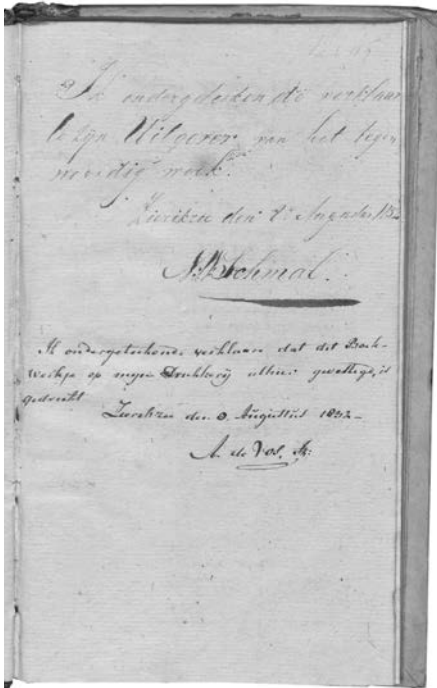 Ik ondergeteekende verklaar
te zijn Uitgever van het tegen
woordig werk.
Zierikzee den Augustus
Schmal.
Ik ondergeteekende verklaare dat dit Boek-
werkje op mijne Drukkerij alhier gevestigd, is
gedrukt
Zierikzee den Augustus 1832-
A. de Vos,